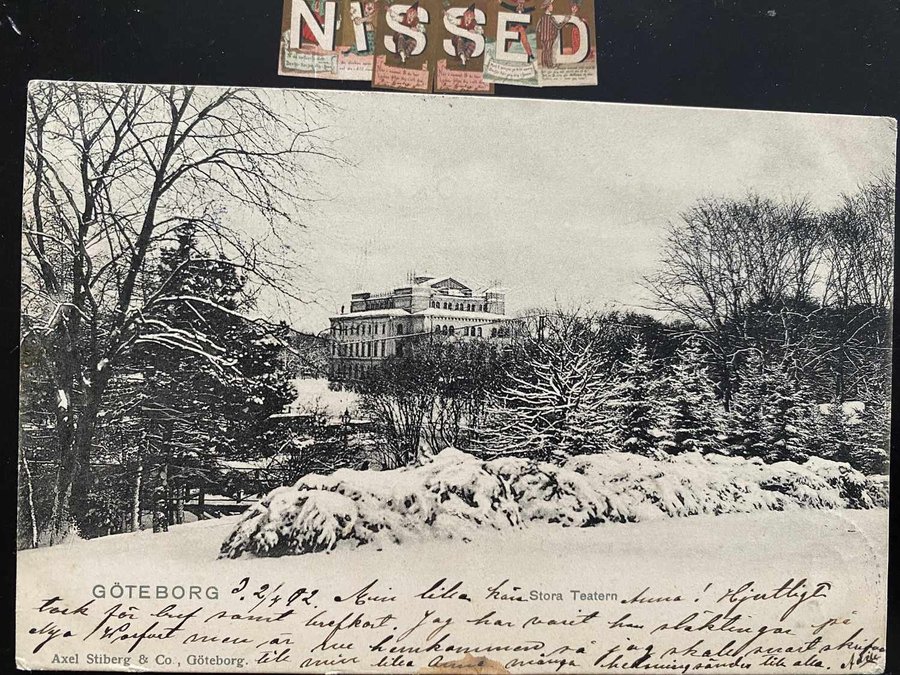 NISSED
GÖTEBORG 3.2/4 02. Min lilla kära Stora Teatern Anna! Hjertligt
tack för bref samt brefkort. Jag har varit hos släktingar på
Nya Varfvet men är nu hemkommen så jag skall snart skrifva
Axel Stiberg & Co., Göteborg. till min lilla Anna många helsningar till alla.